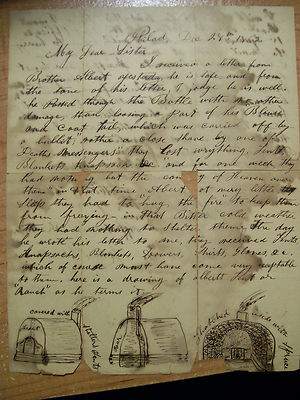 Philad, Dec 28th 1862
My Dear Sister
I received a letter from
Brother Albert yesterday, he is safe and from
the tone of his letter I judge he is well.
he passed through the Battle with no other
damage, than loosing a part of his Blouse
and Coat tail, which was carried off by
a bullet, rather a close shave by one of
Deaths Messengers. they lost everything, Tents
Blankets Knapsacks &c and for one week they
had nothing but the canopy of Heaven over
them in that time Albert got mery little
Sleep they had to hug the fire to keep them
from freezing in that Bitter cold weather
they had nothing to Shelter them. the day
he wrote his letter to me they received Tents,
Knapsacks, Blankets, Drawers, Shirts, Gloves &c.
which of course must have come very exceptable
to them. here is a drawing of alberts Tent or
Ranch" as he terms it.
covered with
Shelter tents
front
Thatched
side with
Spruce